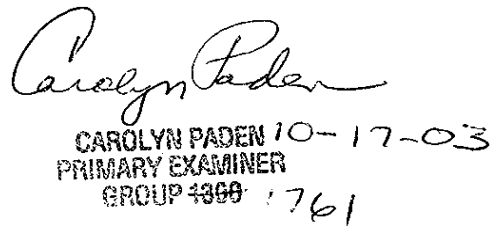 Carolyn Paden
CAROLYN PADEN 10-17-03
PRIMARY EXAMINER
GROUP 1300 1761